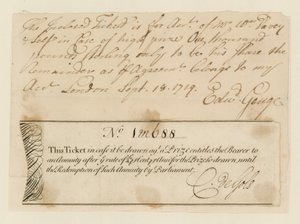 The Inclosed Ticket is for Acct. of Mr. Wm. Pavey
& Self in Case of high prize One thousand
pound sterling only to be his Share the
Remainder as Agreemt. belongs to my
Acct. London Sept. 18. 1719.
Edwd.
No. 1m688
This Ticket in case it be drawn a Prize entitles the Bearer to
an Annuity after ye rate of Cent p Ann for the Prize so drawn, until
the Redemption of such Annuity by Parliament.